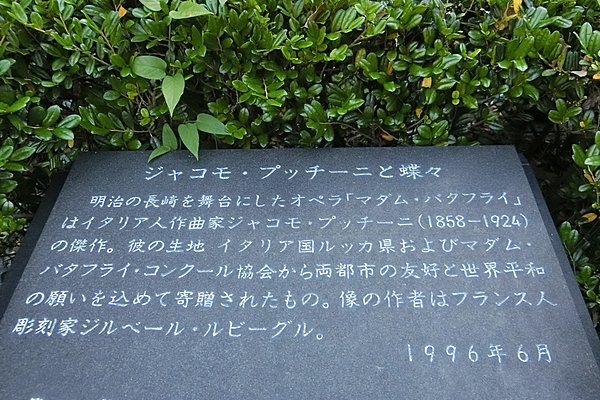 ジャコモ・プッチーニと蝶々
明治の長崎を舞台にしたオペラ「マダム・バタフライ」
はイタリア人作曲家ジャコモ・プッチーニ(1858−1924)
の傑作。彼の生地 イタリア国ルッカ県およびマダム・
バタフライ・コンクール協会から両都市の友好と世界平和
の願いを込めて寄贈されたもの。像の作者はフランス人
彫刻家ジルベール・ルビーグル。
1996年6月